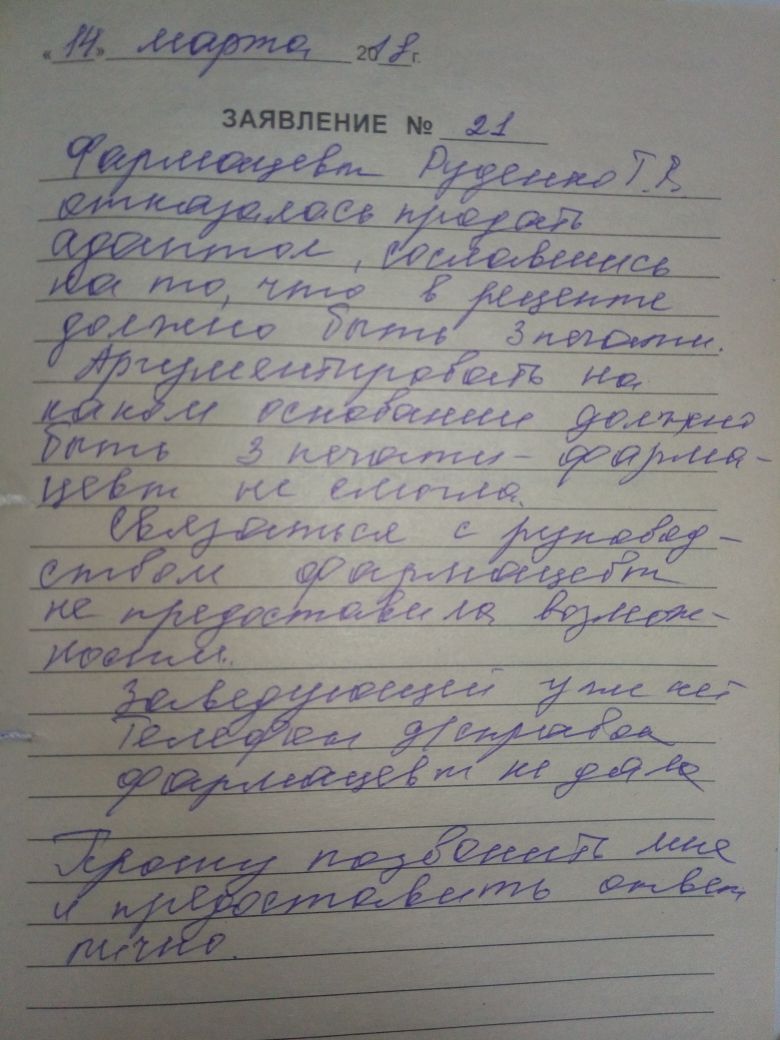 «14» марта 2018 г.
ЗАЯВЛЕНИЕ № 21
Фармацевт Руденко Т.В.
отказалась продать
адаптол, сославшись
на то, что в рецепте
должно быть 3 печати.
Аргументировать на
каком основании должно
быть 3 печати - фарма-
цевт не смогла.
Связаться с руковод-
ством фармацевт
не предоставила возмож-
ности.
Заведующей уже нет
Телефон справок
фармацевт не дала
Прошу позвонить мне
и предоставить ответ
лично.